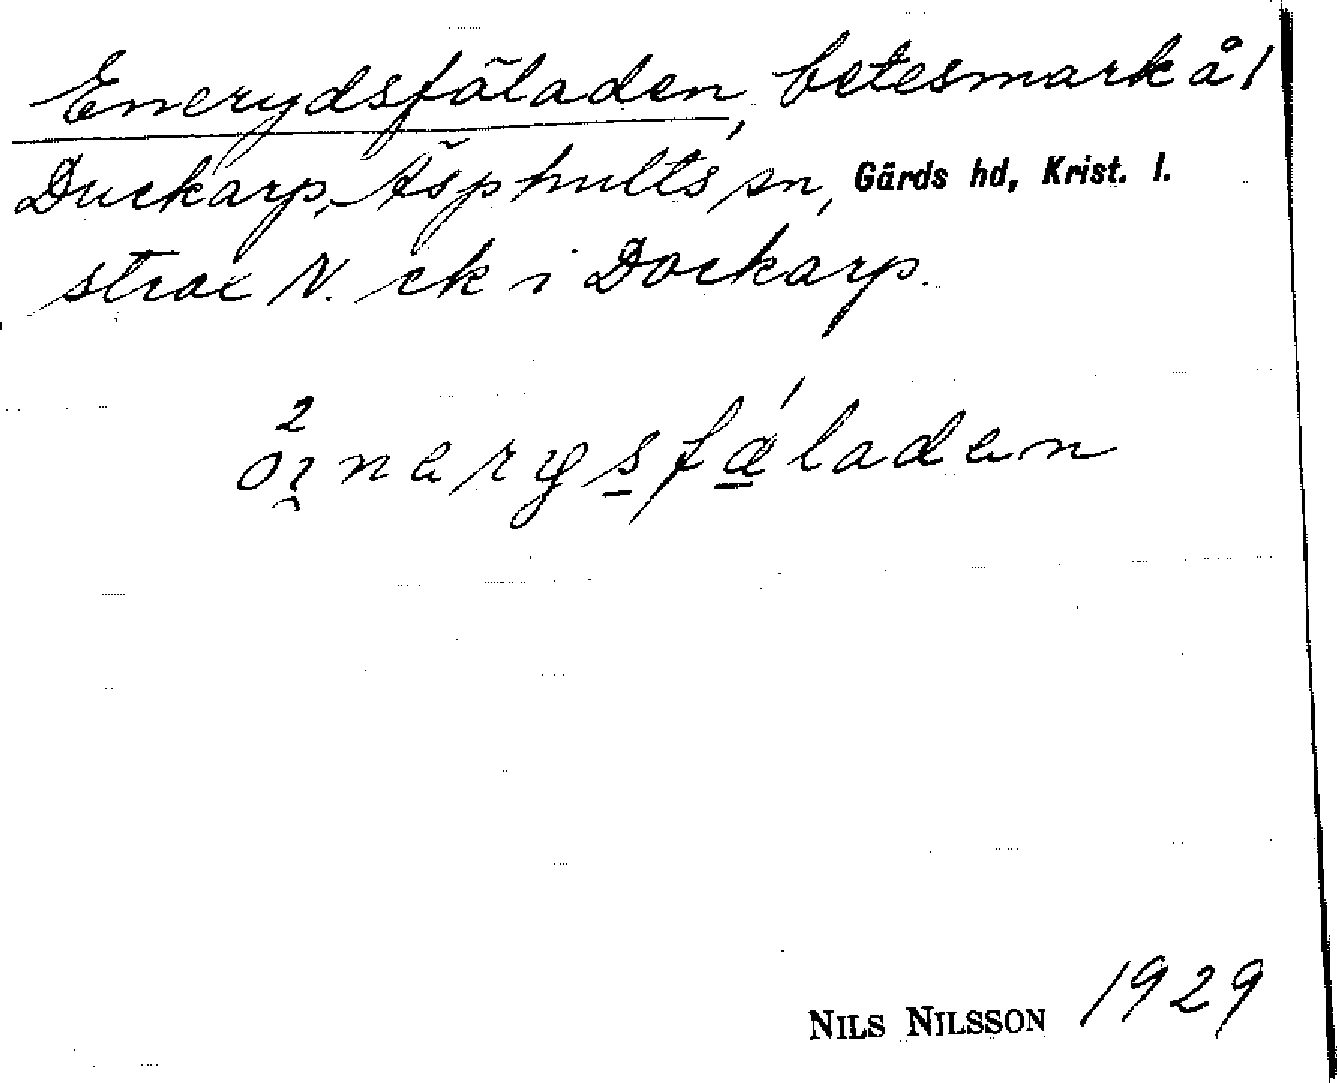 Enerydsfäladen, betesmark å 1
Duckarp, Äsphults sn, Gärds hd, Krist. l.
strax N. ck i Dockarp.
2
nerysfäladen
NILS NILSSON 1929